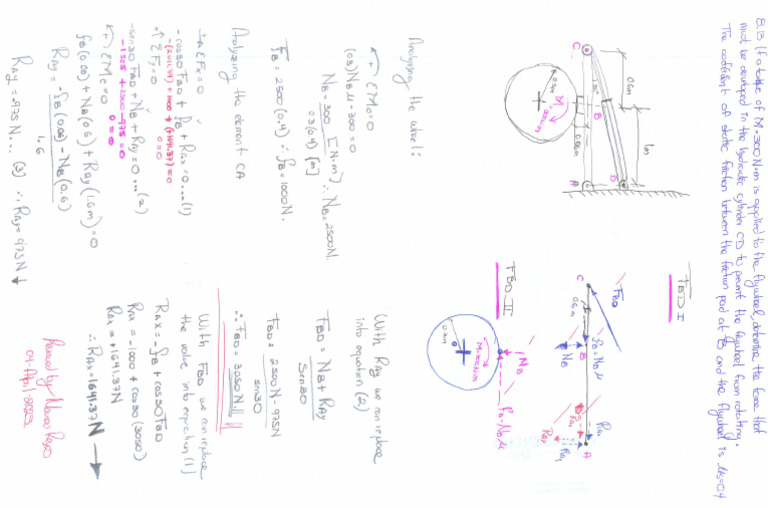 8.3 If a torque of M=300 N·m is applied to the flywheel, determine the force that
must be developed in the hydraulic cylinder CD to prevent the flywheel from rotating.
The coefficient of static friction between the friction pad at B and the flywheel is μs=0.4
0.6m
1m
C
30°
B
D
A
0.06m
0.3m
M
FBD I
FBD
C
0.6m
fB=NBμ
NB
B
A
RAx
RAy
FBD II
NB
fB=NBμ
0.3m
Analyzing the wheel:
↶+ ΣMo=0
(0.3)NBμ-300=0
NB=300 [N·m] ∴ NB=2500N
0.3(0.4) [m]
FB=2500(0.4) ∴ fB=1000N.
Analyzing the element CA
ΣFx=0
-cos30 FBD + fB + RAx=0...(1)
0=0
+↑ΣFy=0
-sen30 FBD + NB + RAy=0...(2)
-1525 + 2500 -975=0
0=0
↶+ ΣMc=0
fB(0.06) + NB(0.6) + RAy(1.6m)=0
RAy = -fB(0.06) - NB(0.6)
1.6
RAy=-975N... (3) ∴ RAy=975N ↓
With RAy we can replace
into equation (2)
FBD = NB + RAy
Sen30
FBD = 2500N - 975N
sen30
∴ FBD = 3050N.
With FBD we can replace
the value into equation (1)
RAx=-fB + cos30 FBD
RAx=-1000 + cos30 (3050)
RAx=+1641.37N
∴ RAx=1641.37N →
04 April 2023